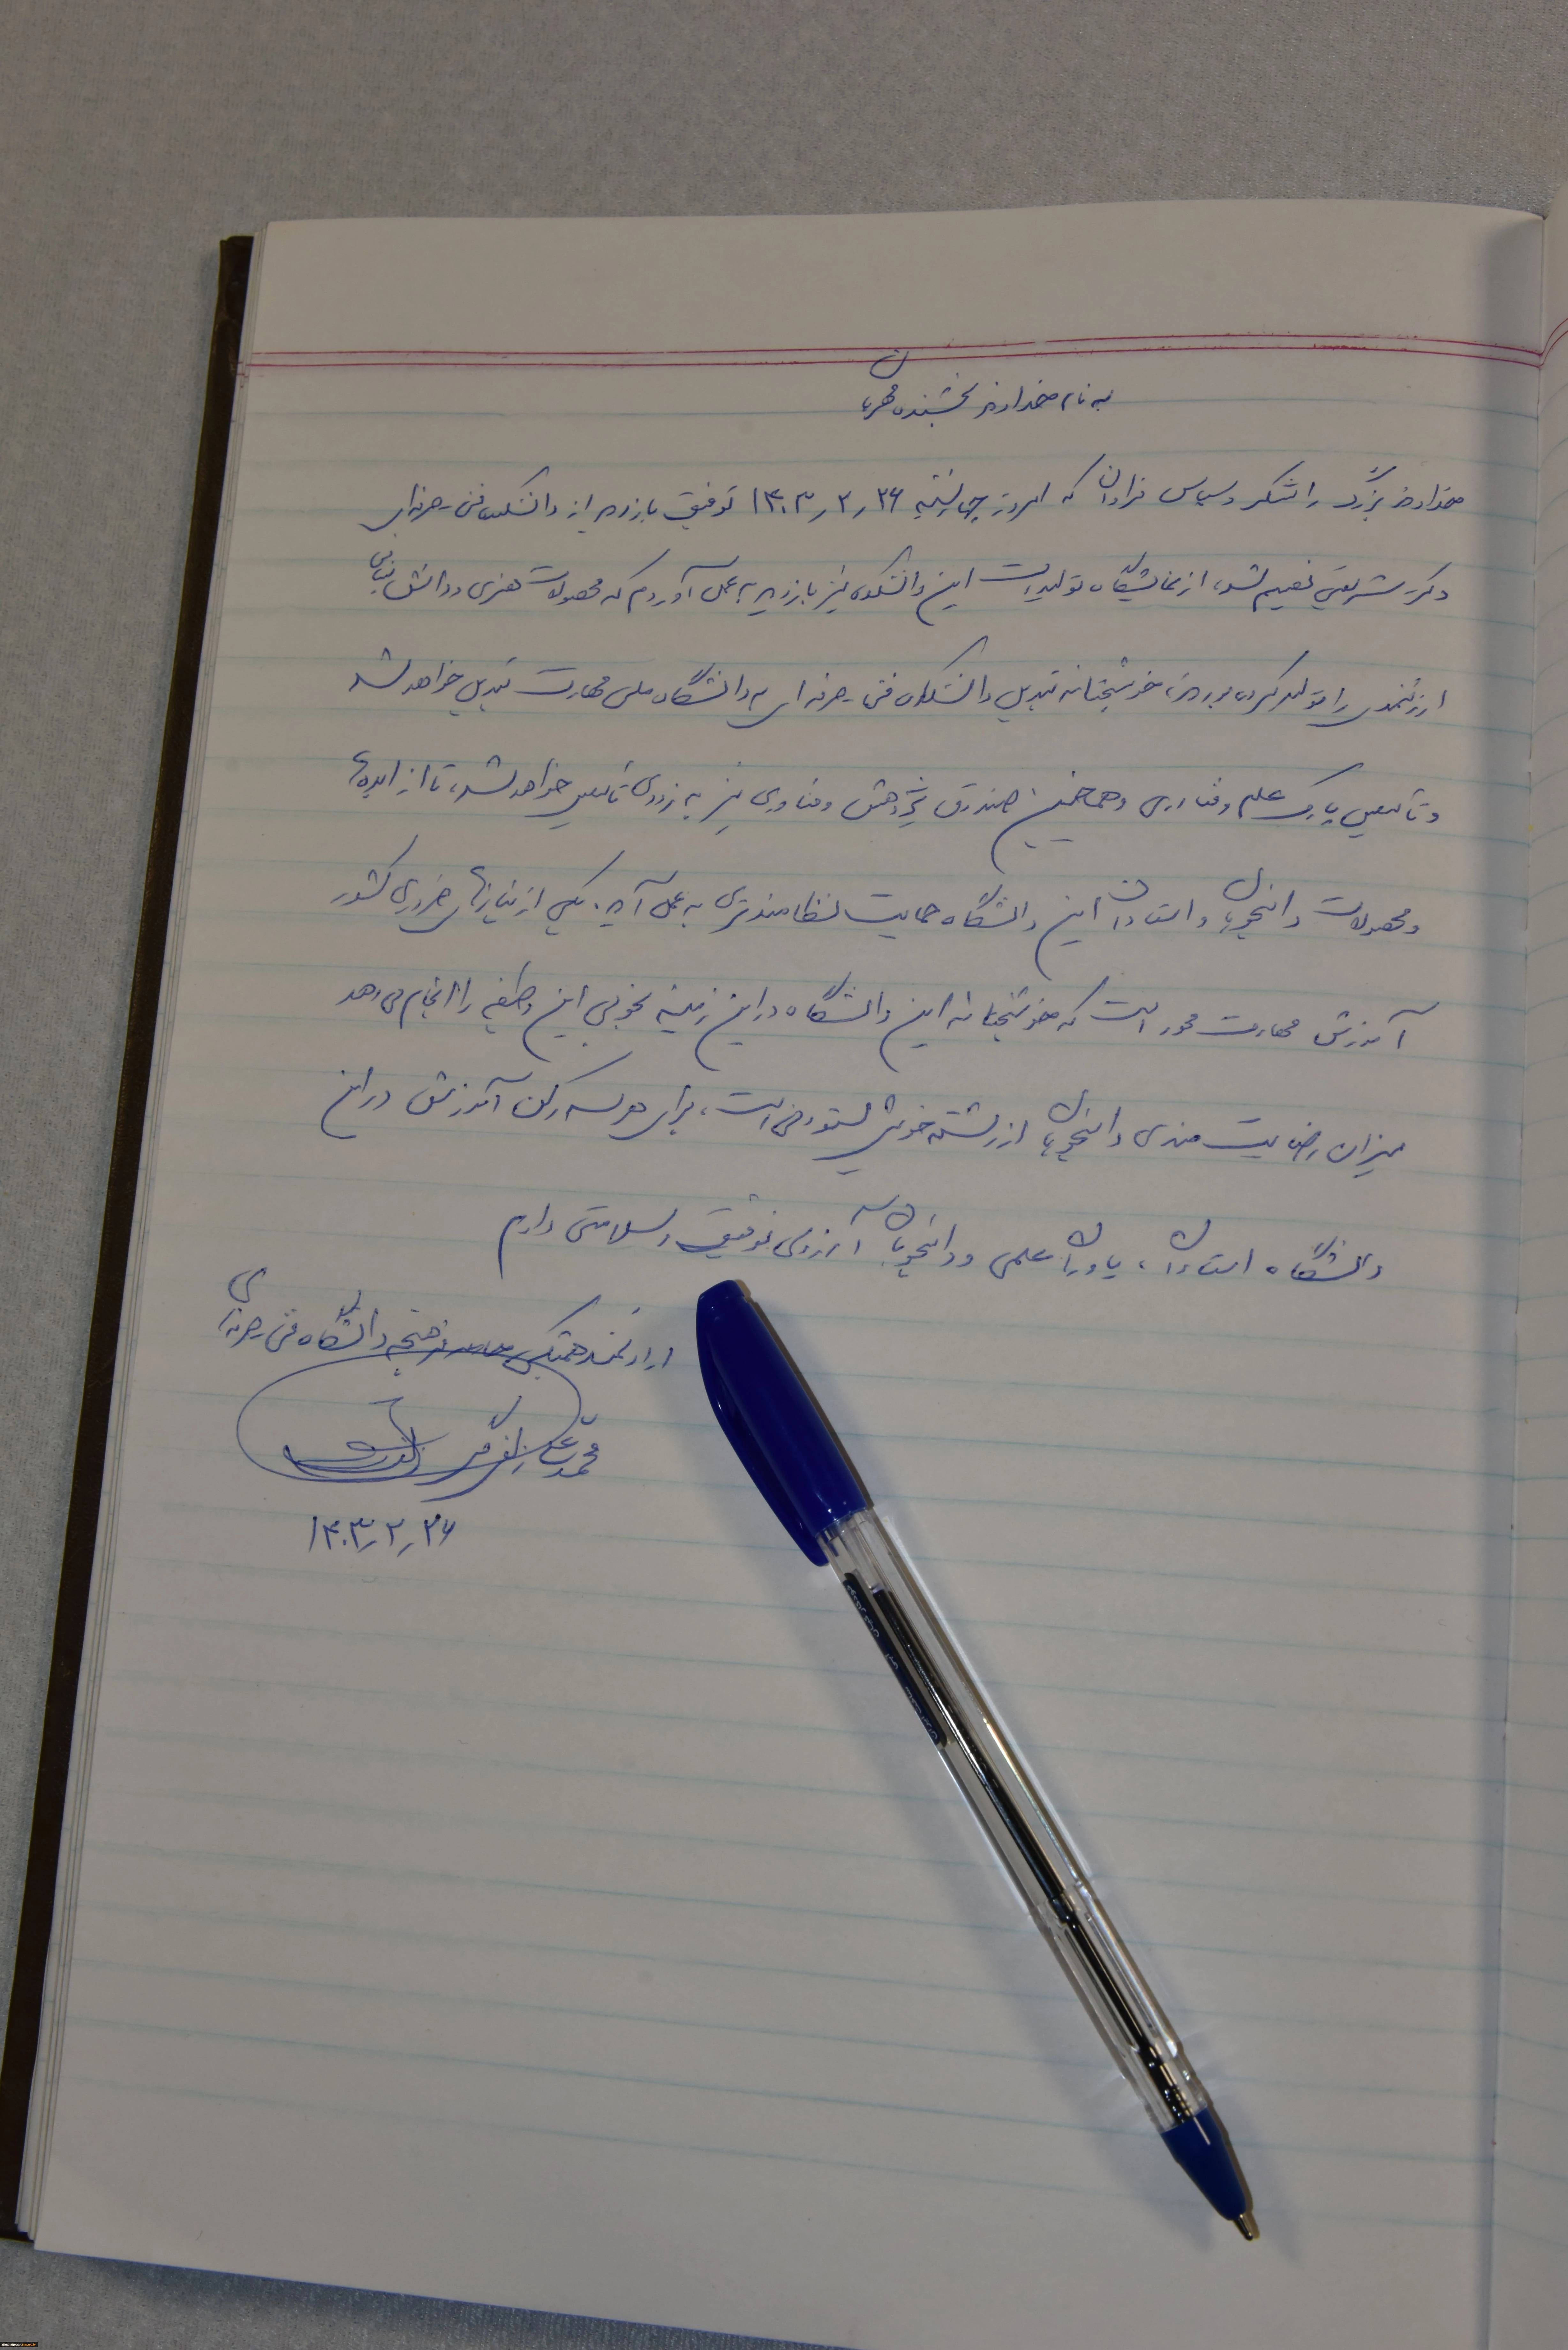 به نام خداوند بخشنده مهربان
خداوند بزرگ را شکر و سپاس فراوان که امروز چهارشنبه ۱۴۰۳٫۲٫۲۶ توفیق بازدید از دانشکده فنی و حرفه‌ای
دکتر شریعتی نصیبم شد، از نمایشگاه تولیدات این دانشکده نیز بازدید به عمل آوردم که محصولات هنری و دانش بنیانی
ارزشمندی را تولید کرده بودند، خوشبختانه تبدیل دانشکده فنی و حرفه‌ای به دانشگاه ملی مهارت تبدیل خواهد شد
و تأسیس پارک علم و فناوری و همچنین صندوق پژوهش و فناوری نیز به زودی تأسیس خواهد شد، تا از ایده‌های
و محصولات دانشجویان و استادان این دانشگاه حمایت نظامندتری به عمل آید. یکی از نیازهای ضروری کشور
آموزش مهارت محور است که خوشبختانه این دانشگاه در این زمینه بخوبی این وظیفه را انجام می‌دهد
میزان رضایت مندی دانشجویان از رشته خویش ستودنی است، برای هر سه رکن آموزش در این
دانشگاه استادان، یاوران علمی و دانشجویان آرزوی توفیق و سلامتی دارم
ارادتمند همیشگی فرهیختگان دانشگاه فنی و حرفه‌ای
محمد علی
۱۴۰۳٫۲٫۲۶